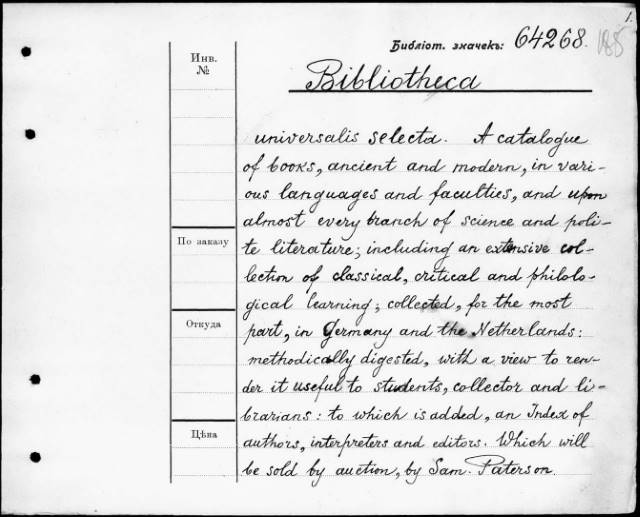 1.
Библіот. значекъ: 64268. 185
Инв.
№
Bibliotheca
universalis selecta. A catalogue
of books, ancient and modern, in vari-
ous languages and faculties, and upon
almost every branch of science and poli-
te literature; including an extensive col-
lection of classical, critical and philolo-
gical learning; collected, for the most
part, in Germany and the Netherlands:
methodically digested, with a view to ren-
der it useful to students, collector and li-
brarians: to which is added, an Index of
authors, interpreters and editors. Which will
be sold by auction, by Sam. Paterson.
По заказу
Откуда
Цѣна